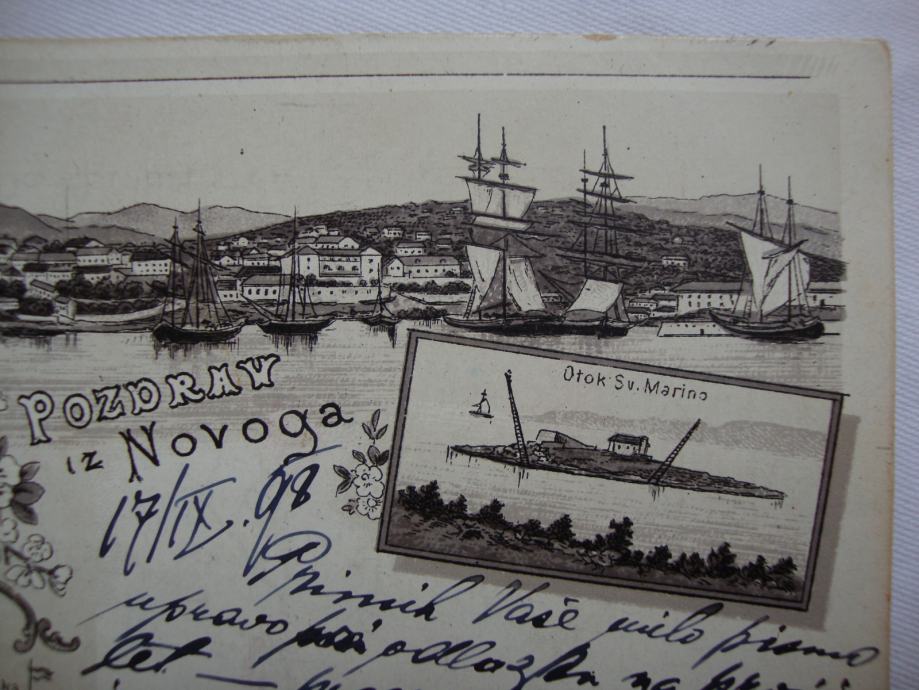 POZDRAW
iz Novoga
Otok Sv. Marino
17/IX. 98
Primih Vaše milo pismo
upravo odlazka na
let —